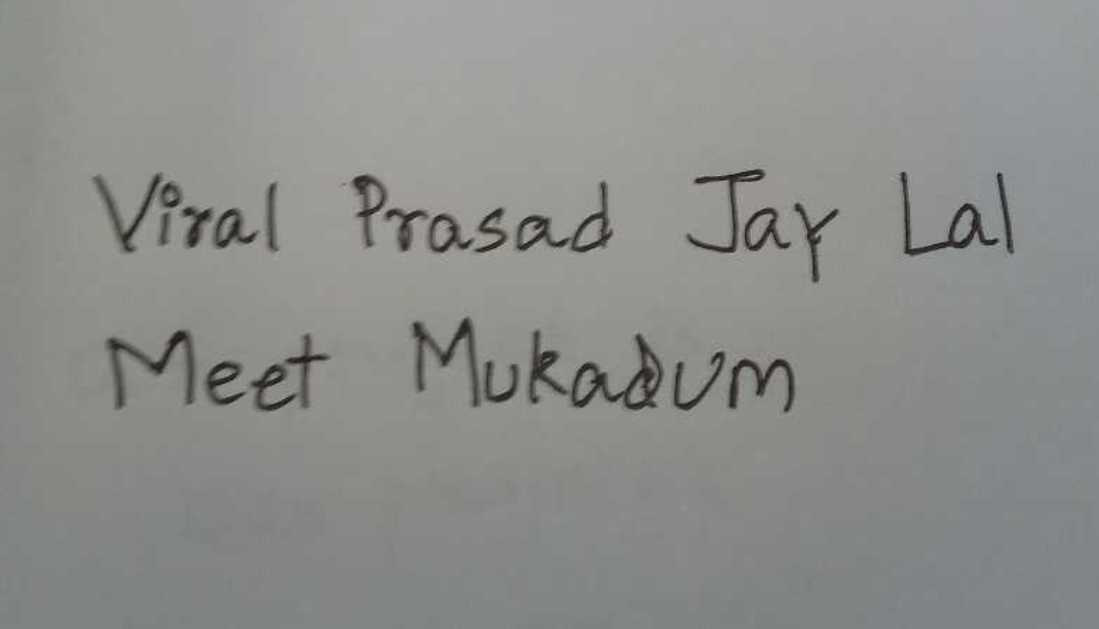 Viral Prasad Jay Lal
Meet Mukadum